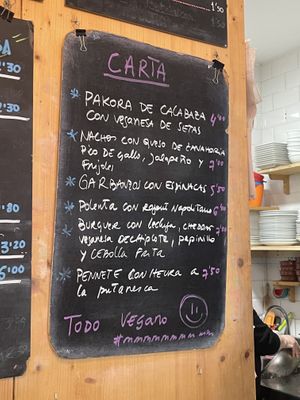 1'50
CARTA
* PAKORA DE CALABAZA
CON VEGANESA DE SETAS 4'00
* NACHOS CON QUESO DE ZANAHORIA
PICO DE GALLO, JALAPEÑO Y 7'00
FRIJOLES
* GARBANZO CON ESPINACAS 5'50
* POLENTA CON RAGOUT NAPOLITANO 6'00
* BURGUER CON LECHUGA, CHEDDAR 7'00
VEGANESA DE CHIPOTLE, PEPINILLO
Y CEBOLLA FRITA
* PENNETE CON HEURA A 7'50
LA PUTANESCA
TODO VEGANO
2'30
2'30
3'20
6'00